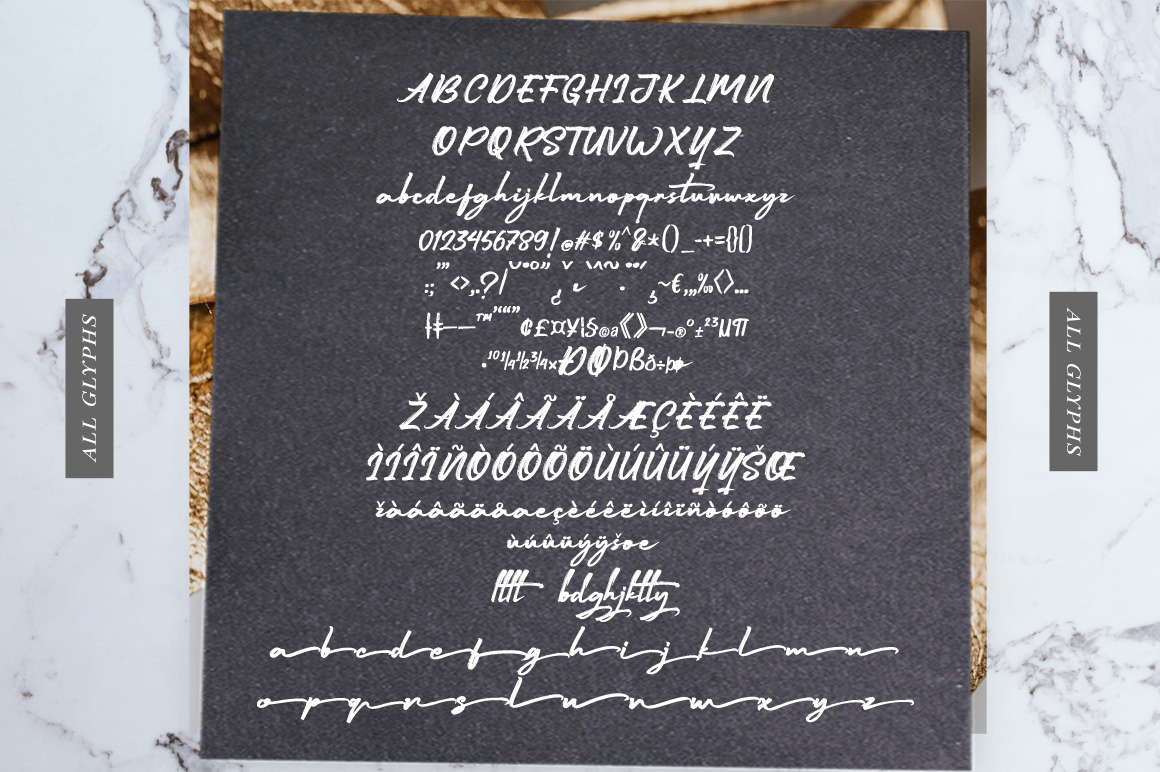 ALL GLYPHS
ABCDEFGHIJKLMN
OPQRSTUVWXYZ
abcdefghijklmnopqrstuvwxyz
0123456789!@#$%^&*()_-+={}[]
ŽÀÁÂÃÄÅÆÇÈÉÊË
ÌÍÎÏÑÒÓÔÕÖÙÚÛÜÝŸŠŒ
žàáâãäåæçèéêëìíîïñòóôõö
ùúûüýÿšœ
abcdefghijklmn
opqrstuvwxyz
ALL GLYPHS